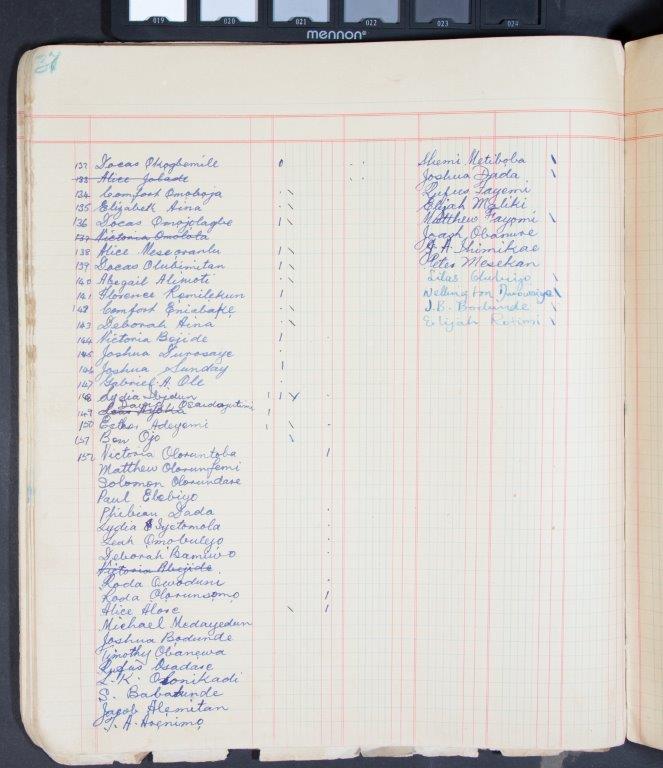 019 020 021 022 023 024
mennon®
37
132 Docas Okogbemile
133 Alice Jolade
134 Comfort Omoboja
135 Elizabeth Aina
136 Docas Omojolagbe
137 Victoria Omolola
138 Alice Meseoranlu
139 Docas Olubimitan
140 Abegail Alimoti
141 Florence Remilekun
142 Comfort Eniabake
143 Deborah Aina
144 Victoria Bejide
145 Joshua Durosaye
146 Joshua Sunday
147 Gabriel A. Ole
148 Lydia
David
149
150 Esther Adeyemi
151 Ben Ojo
152 Victoria Oloruntoba
Matthew Olorunfemi
Solomon Olorundare
Paul Elebiyo
Phibian Dada
Lydia Iyetomola
Leah Omobulejo
Deborah Bamuwo
Victoria Abejide
Roda Owoduni
Roda Olorunsomo
Alice Alore
Michael Medayedun
Joshua Bodunde
Timothy Obanewa
Rufus Osadare
L. K. Olonikadi
S. Babatunde
Jacob Alemitan
J. A. Arenimo
Shemi Metiboba
Joshua Dada
Rufus Fayemi
Elijah Maliki
Matthew Fayomi
Joseph Obanure
J. A. Shimikae
Peter Mesekan
Silas Olubiyo
Wellington
J. B. Bodunde
Elijah Rotimi